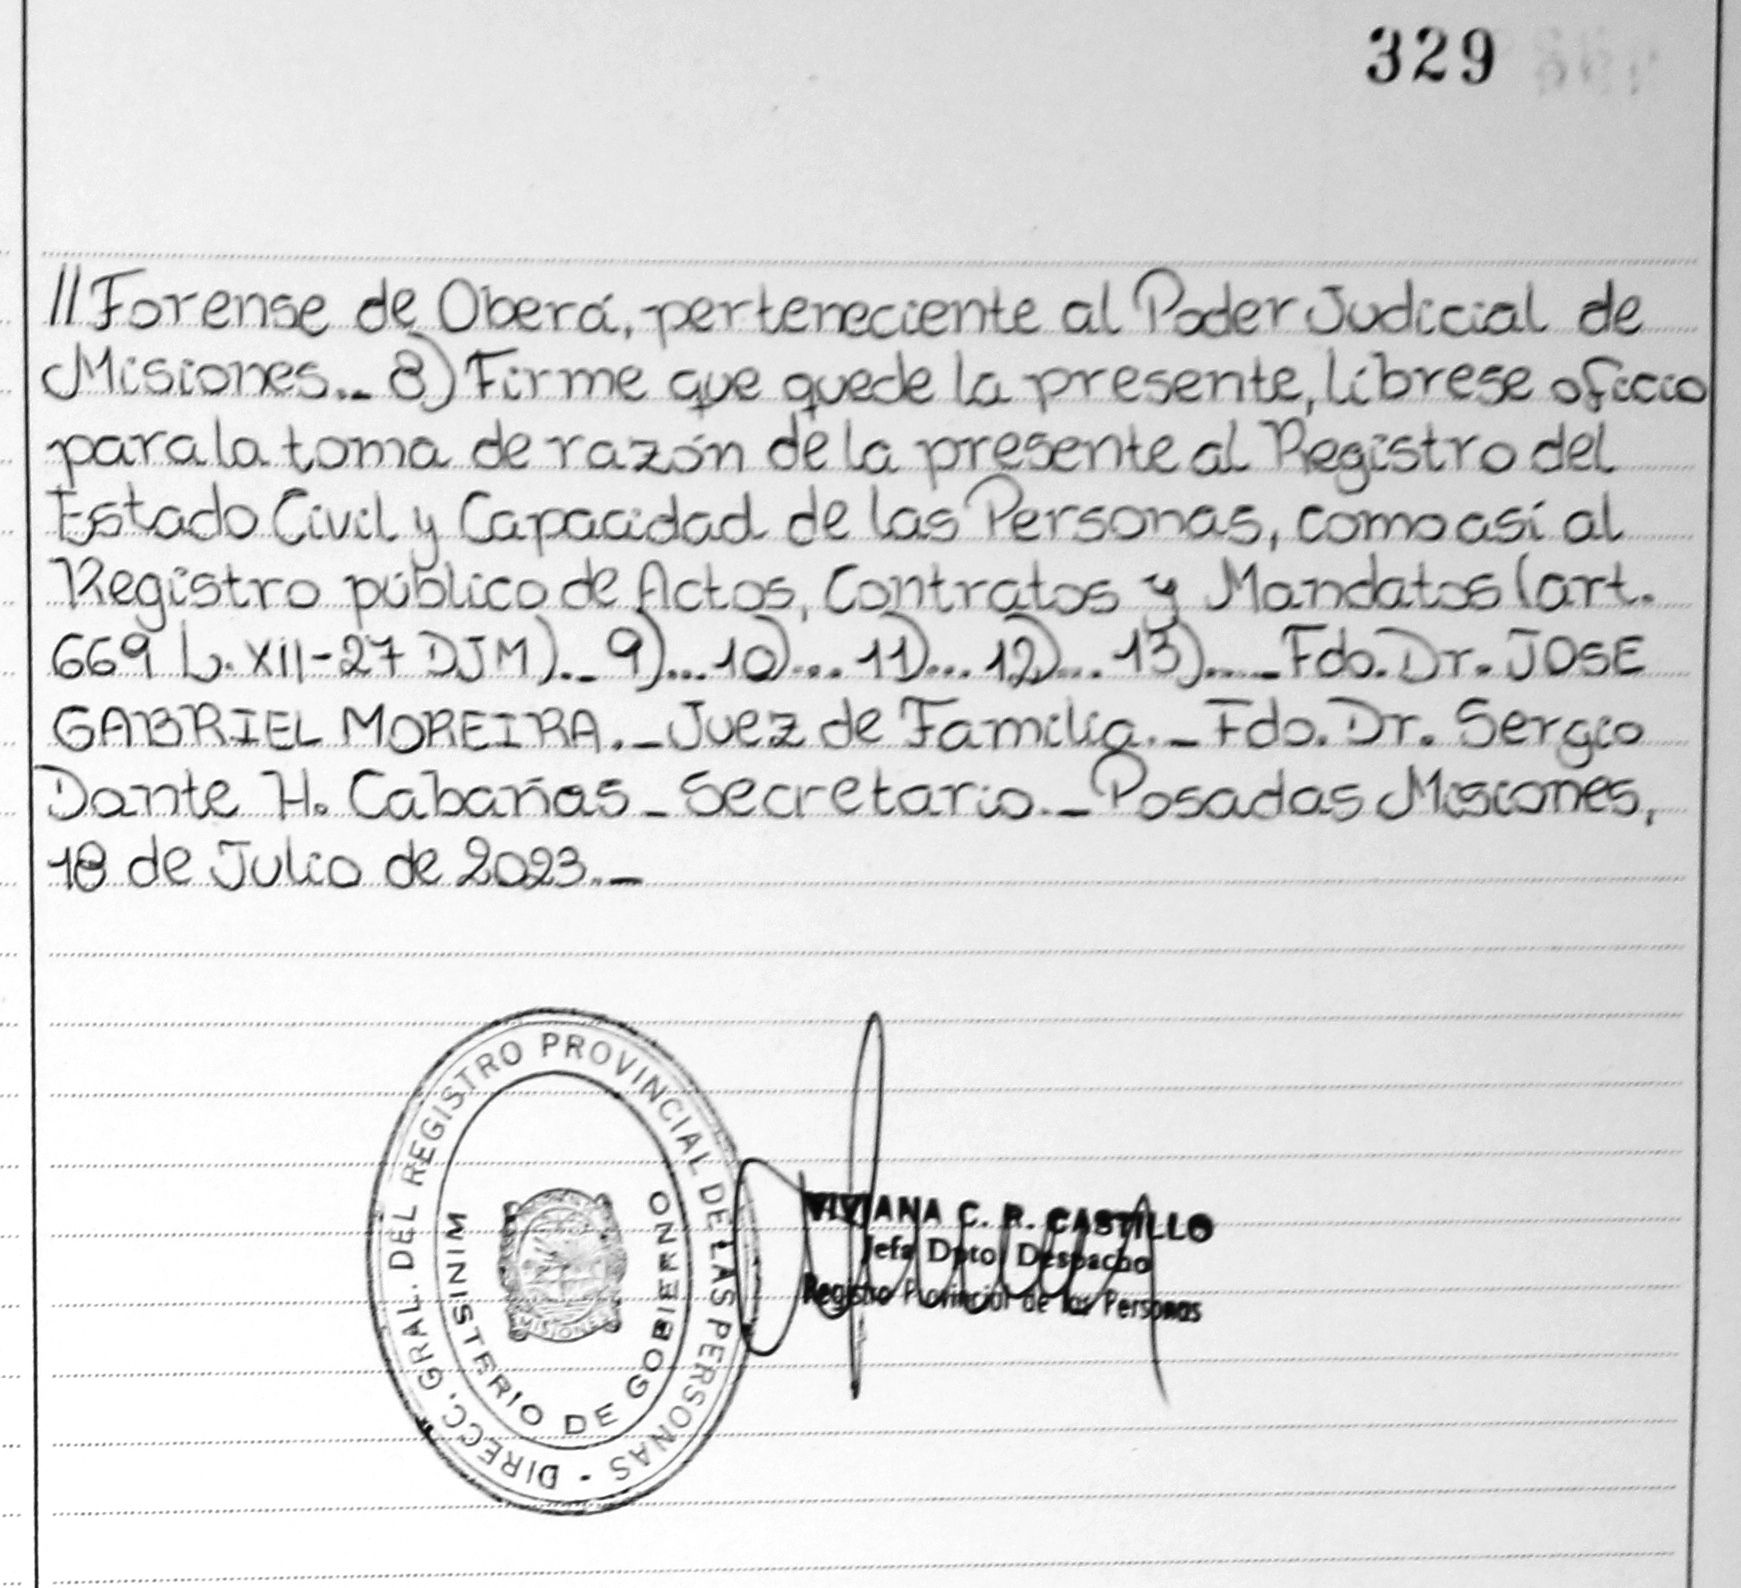 329
//Forense de Oberá, perteneciente al Poder Judicial de
Misiones._ 8) Firme que quede la presente, líbrese oficio
para la toma de razón de la presente al Registro del
Estado Civil y Capacidad de las Personas, como así al
Registro público de Actos, Contratos y Mandatos (art.
669 L. XII-27 DJM)._ 9)... 10)... 11)... 12)... 13)...._ Fdo. Dr. JOSE
GABRIEL MOREIRA._ Juez de Familia._ Fdo. Dr. Sergio
Dante H. Cabañas _ Secretario._ Posadas Misiones,
18 de Julio de 2023._
DIRECC. GRAL. DEL REGISTRO PROVINCIAL DE LAS PERSONAS -
MINISTERIO DE GOBIERNO
MISIONES
VIVIANA C. R. CASTILLO
Jefa Dpto Despacho
Registro Provincial de las Personas